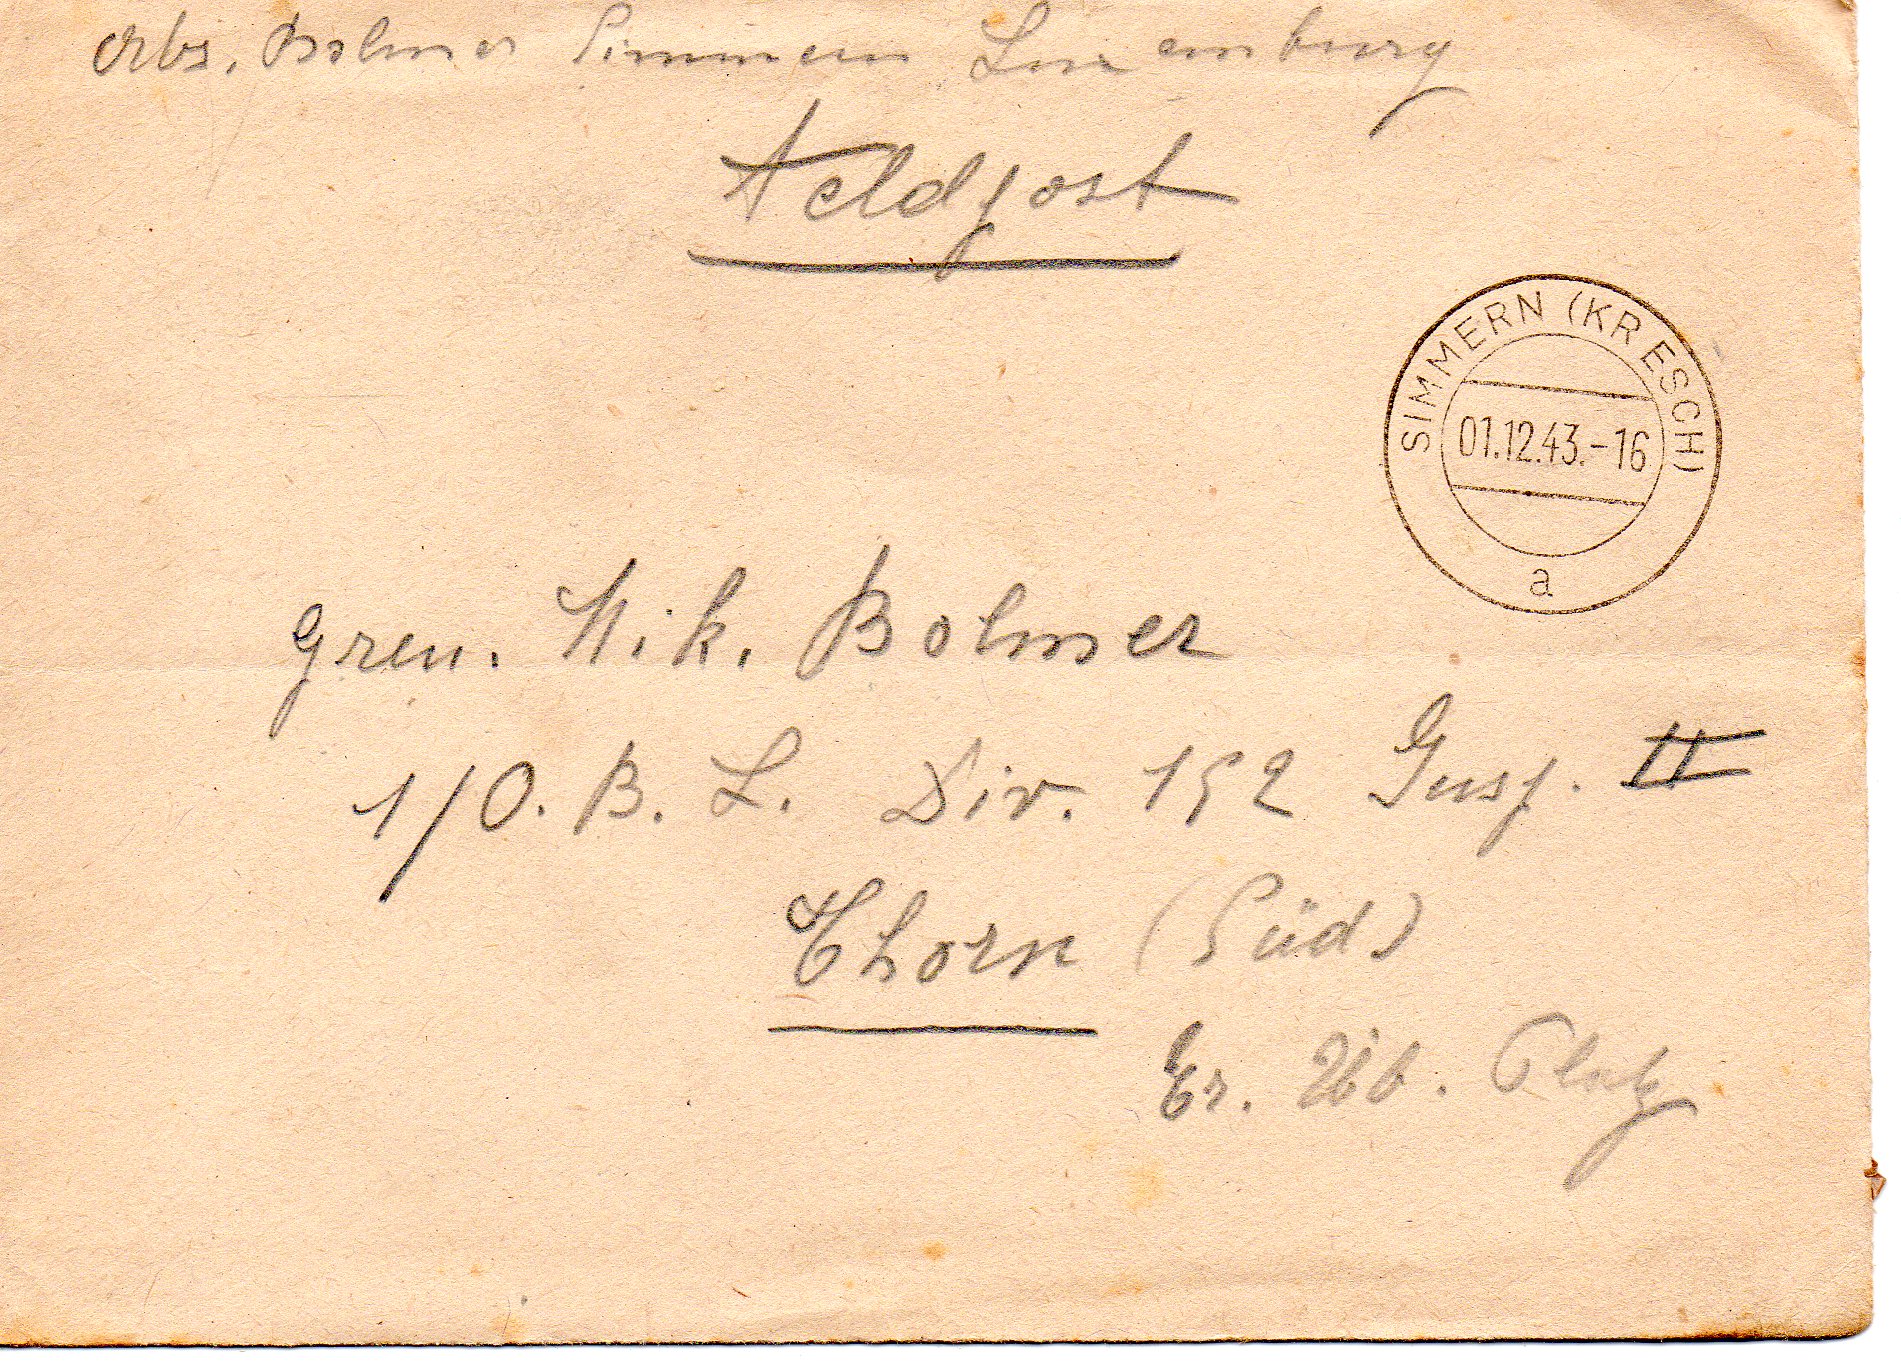 Abs. Bolmer Simmern Luxemburg
Feldpost
SIMMERN (KR ESCH)
01.12.43.-16
a
Gren. Nik. Bolmer
1/O. B. L. Div. 152 Insp. II
Thorn (Süd)
Tr. Üb. Platz